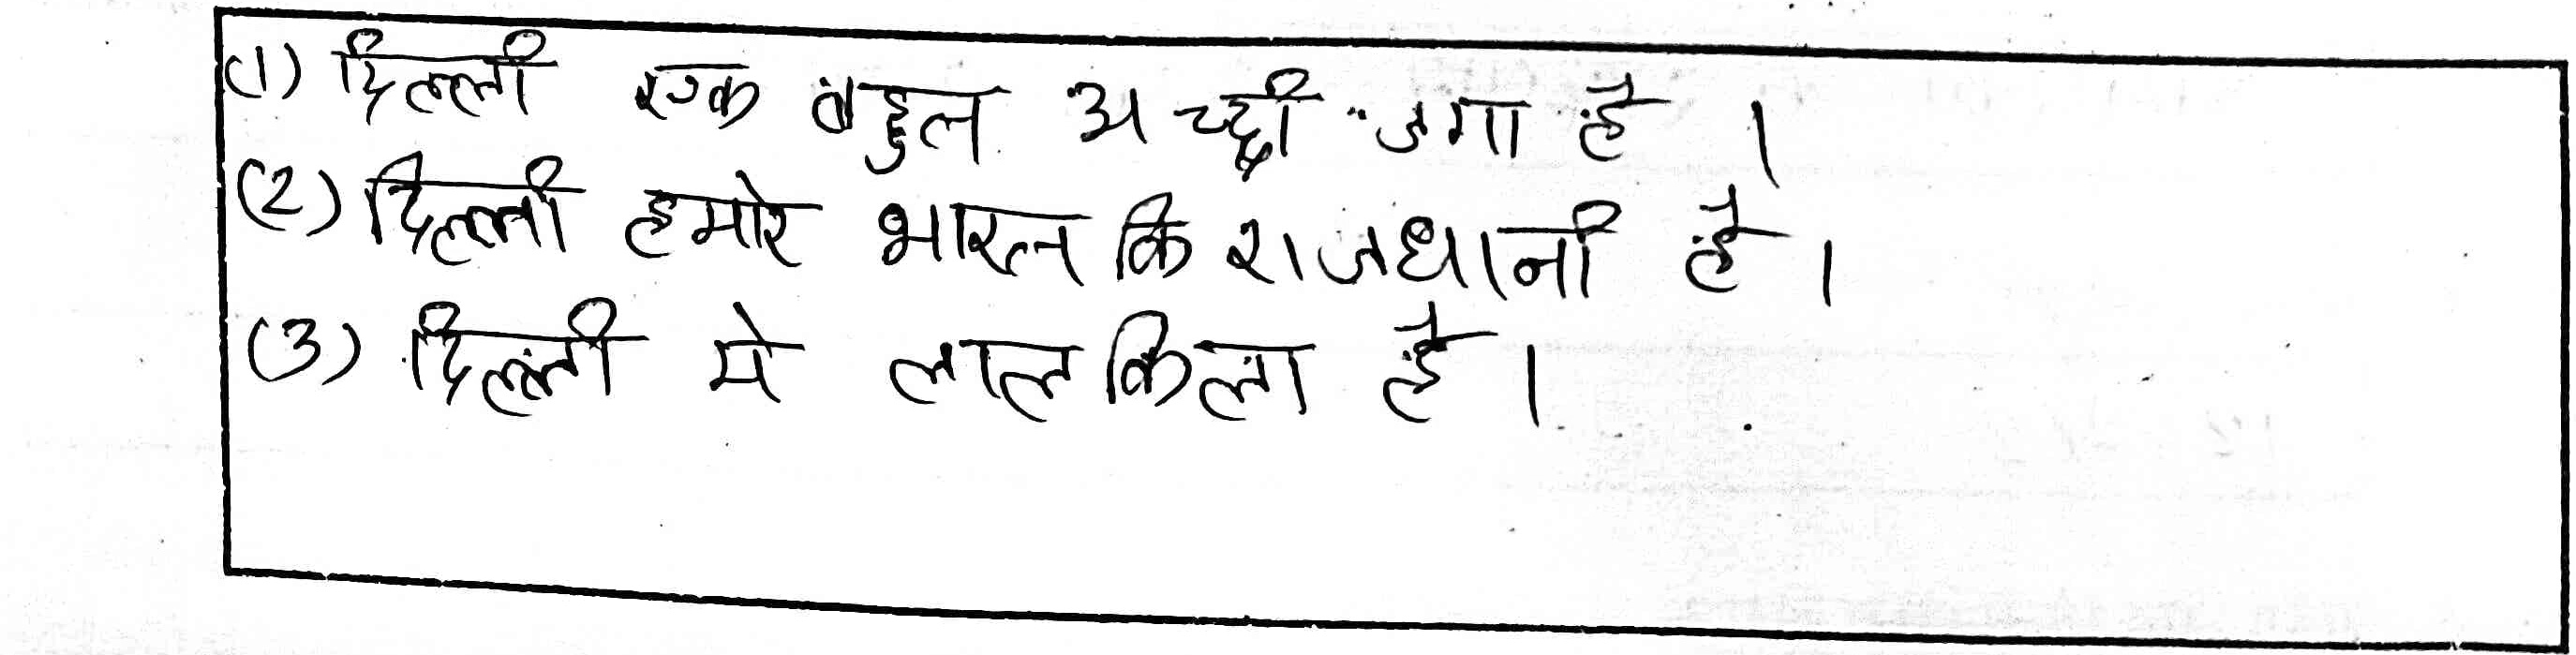 (1) दिल्ली एक बहुत अच्छी जगा है ।
(2) दिल्ली हमारे भारत कि राजधानी है ।
(3) दिल्ली मे लाल किला है ।